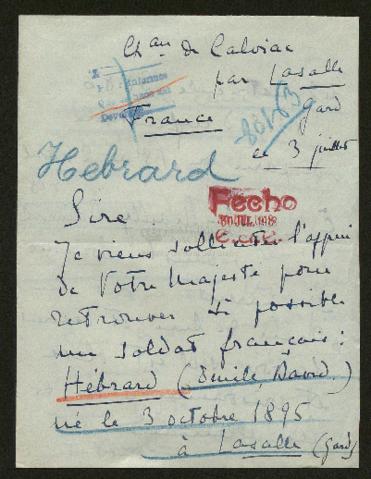 Ch^au de Calviac
par Lasalle
Gard
France
ce 3 juillet
Hebrard
Fecho
30 JUL. 1918
Sire
Je viens solliciter l'appui
de Votre Majesté pour
retrouver si possible
un soldat français :
Hébrard (Emile, David.)
né le 3 octobre 1895
à Lasalle (Gard)